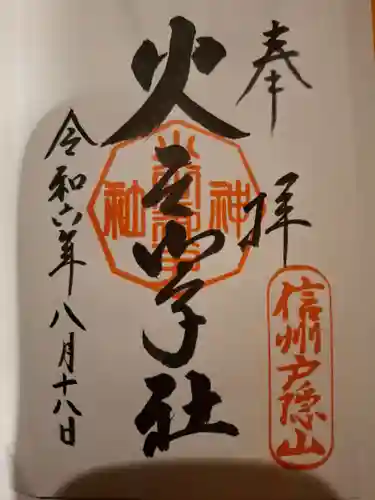 奉拝
信州戸隠山
火之御子社
令和六年八月十八日